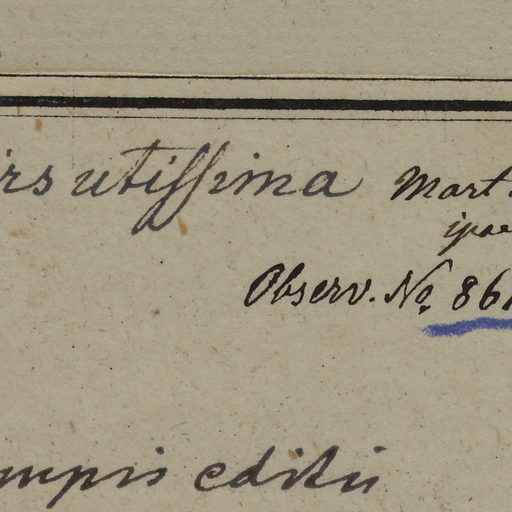 irsutissima Mart.
ipse
Observ. No. 861
mpis editis